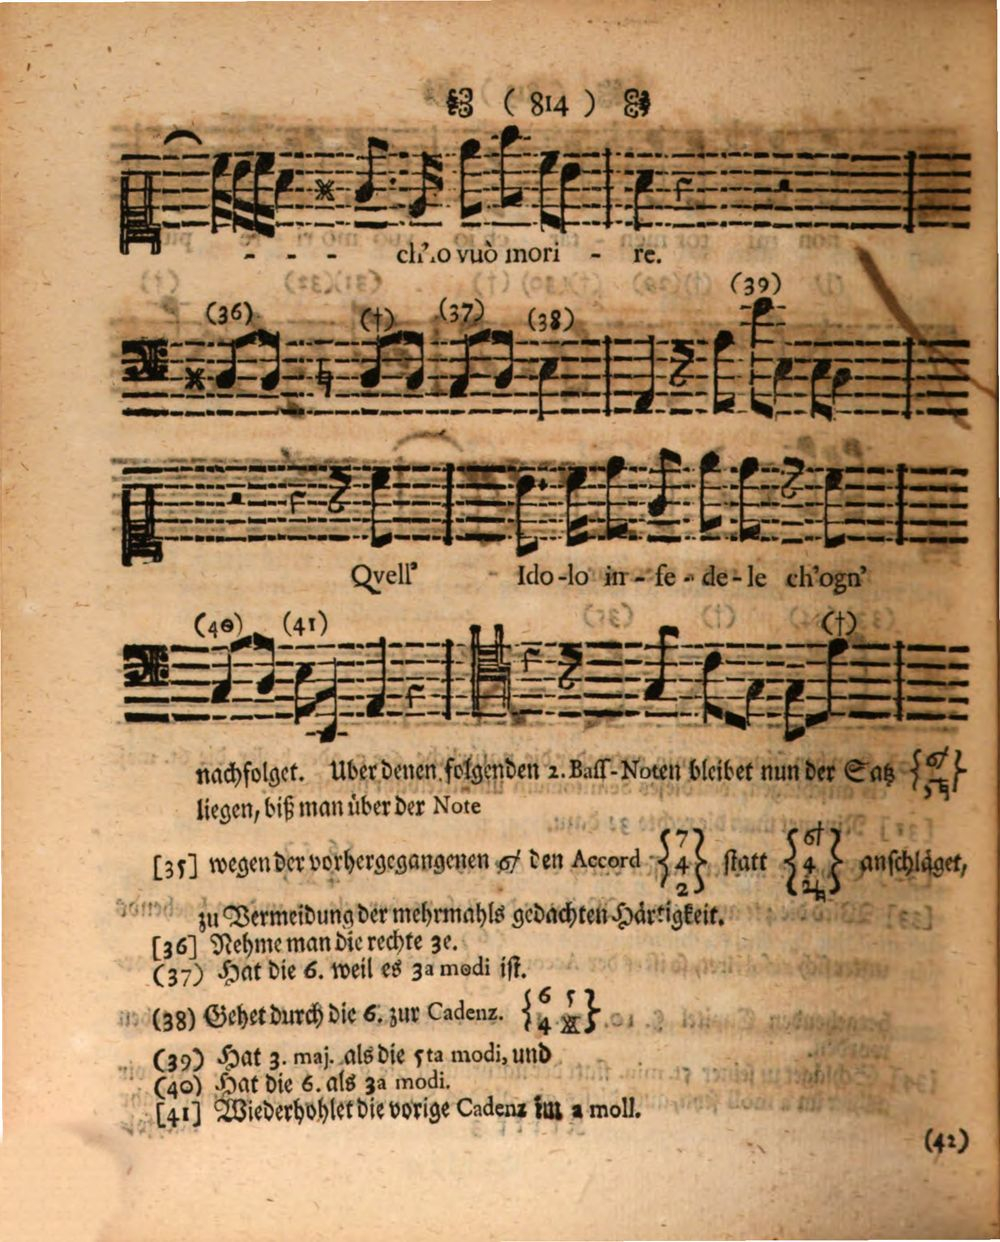 ( 814 )
- - - ch'io vuò mori - re.
(36) (†) (37) (38) (39)
Qvell' Ido-lo in-fe-de-le ch'ogn'
(40) (41) (†)
nachfolget. Uber denen folgenden 2. Bass-Noten bleibet nun der Satz {6† 5♮}
liegen, biß man über der Note
[35] wegen der vorhergegangenen 6† den Accord {7 4 2} statt {6† 4 2♮} anschläget,
zu Vermeidung der mehrmahls gedachten Härtigkeit.
[36] Nehme man die rechte 3e.
(37) Hat die 6. weil es 3a modi ist.
(38) Gehet durch die 6. zur Cadenz. {6 5 4 X}
(39) Hat 3. maj. als die 5ta modi, und
(40) Hat die 6. als 3a modi.
[41] Wiederhohlet die vorige Cadenz im a moll.
(42)